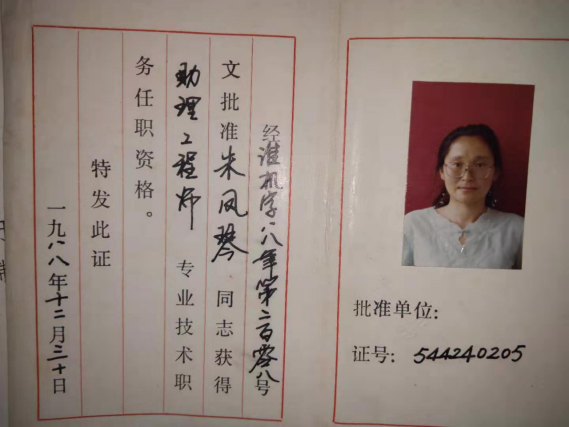 经淮机字八八年第二百零八号
文批准朱凤琴同志获得
助理工程师专业技术职
务任职资格。
特发此证
一九八八年十二月三十日
批准单位:
证号: 544240205